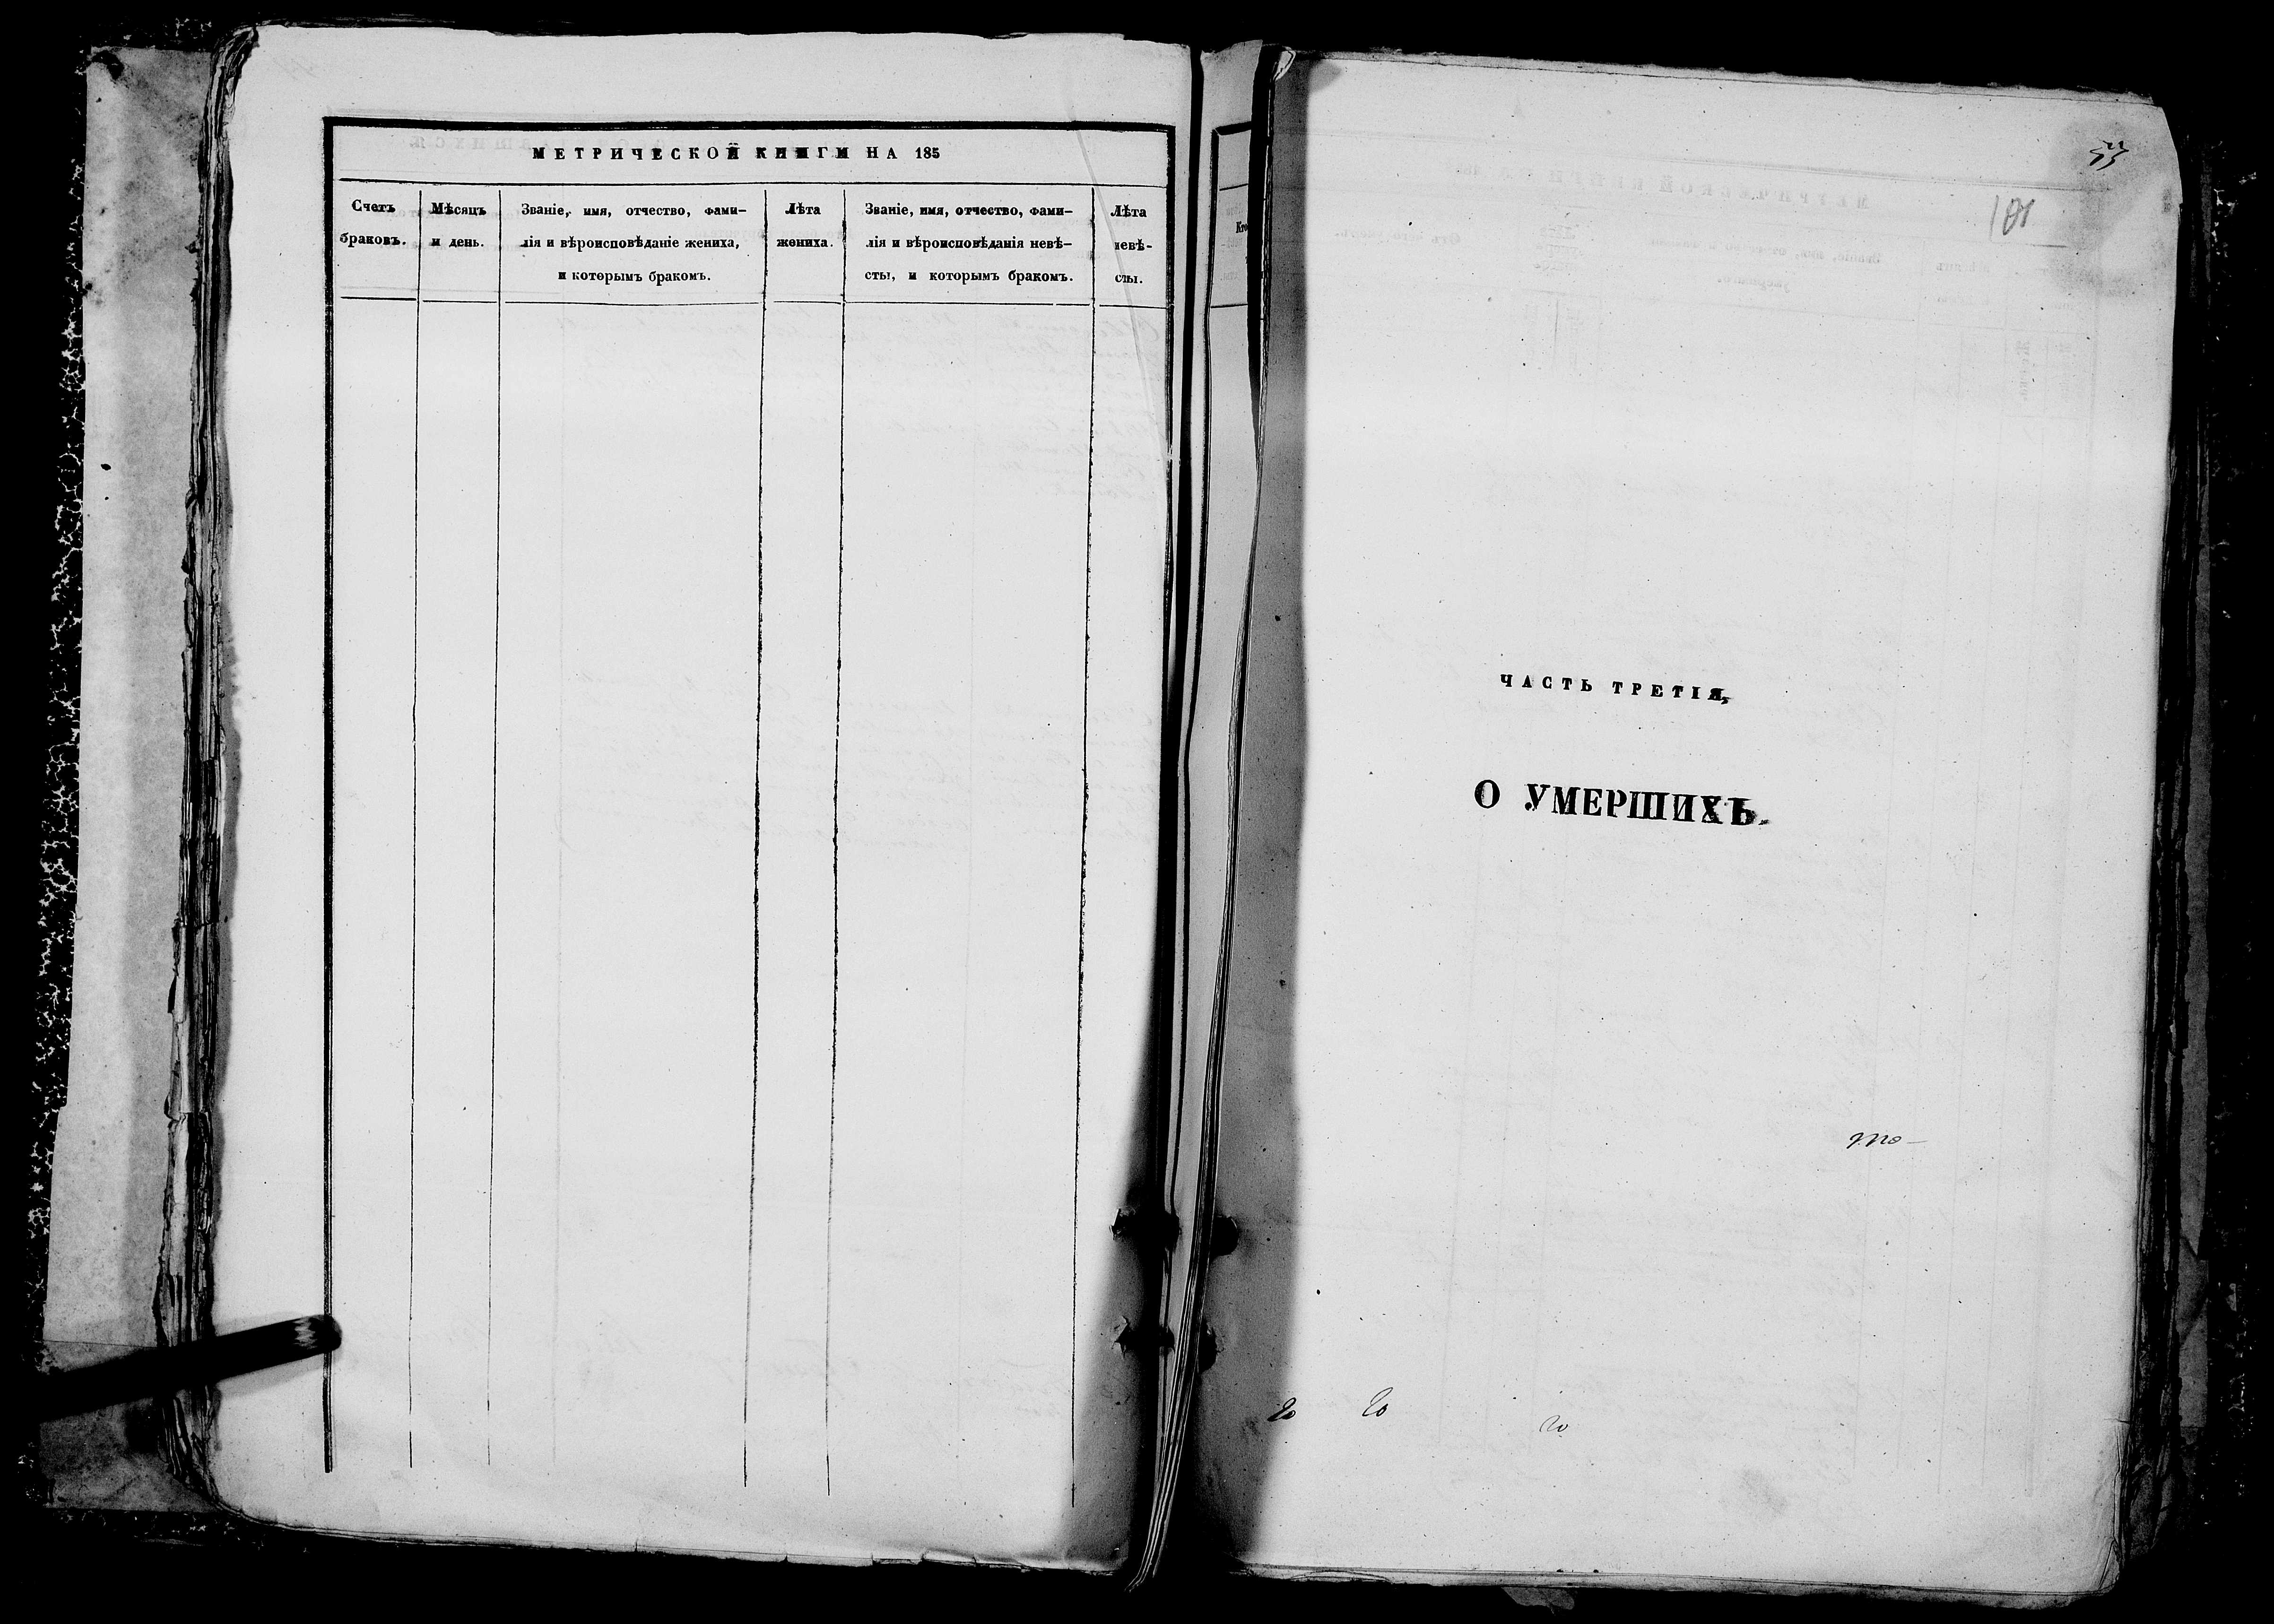 МЕТРИЧЕСКОЙ КНИГИ НА 185
Счетъ браковъ.
Мѣсяцъ и день.
Званіе, имя, отчество, фами-
лія и вѣроисповѣданіе жениха,
и которымъ бракомъ.
Лѣта
жениха.
Званіе, имя, отчество, фами-
лія и вѣроисповѣданія невѣ-
сты, и которымъ бракомъ.
Лѣта
невѣ-
сты.
101
ЧАСТЬ ТРЕТІЯ,
О УМЕРШИХЪ.
то